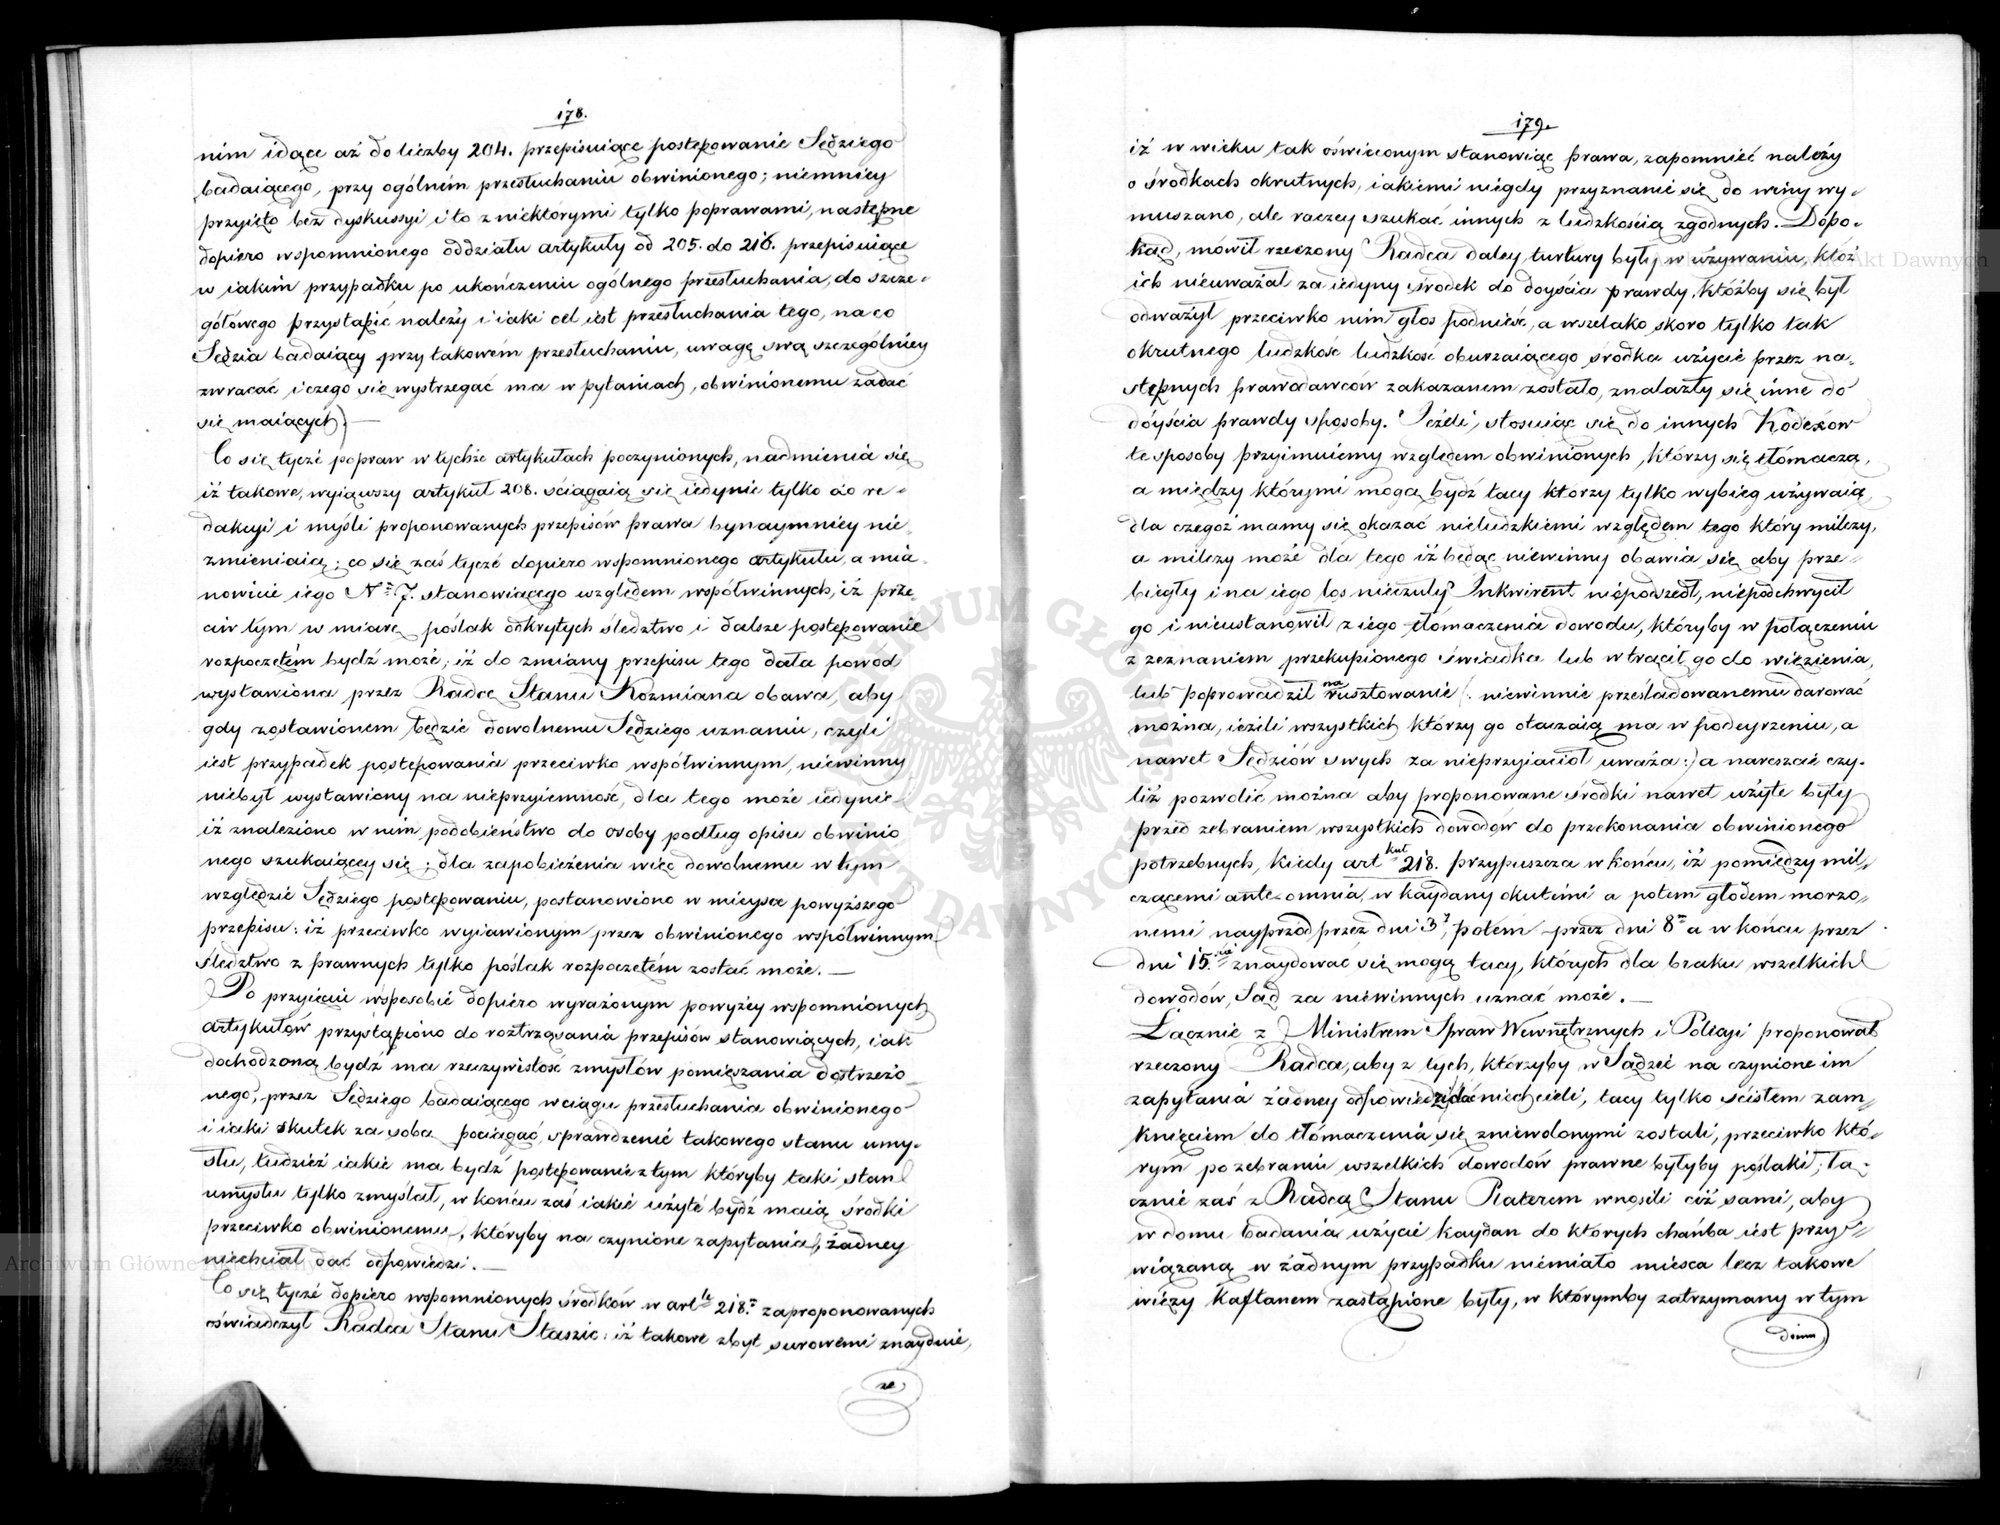 178.
nim idące aż do liczby 204. przepisuiące postępowanie Sędziego
badaiącego, przy ogólném przesłuchaniu obwinionego; niemniey
przyięto bez dyskussyi i to z niektórymi tylko poprawami, następne
dopiero wspomnionego oddziału artykuły od 205. do 216. przepisuiące
w iakim przypadku po ukończeniu ogólnego przesłuchania, do szcze-
gółowego przystąpić należy i iaki cel iest przesłuchania tego, na co
Sędzia badaiący przy takowém przesłuchaniu, uwagę swą szczególniey
zwracać i czego się wystrzegać ma w pytaniach, obwinionemu zadać
się maiących.) —
Co się tycze popraw w tychże artykułach poczynionych, nadmienia się
iż takowe, wyiąwszy artykuł 208. ściągaią się iedynie tylko do re-
dakcyi i myśli proponowanych przepisów prawa bynaymniey nie-
zmieniaią; co się zaś tycze dopiero wspomnionego artykułu, a mia-
nowicie iego Nº 7. stanowiącego względem współwinnych, iż prze-
ciw tym w miarę poślak odkrytych śledztwo i dalsze postępowanie
rozpoczętém bydź może; iż do zmiany przepisu tego dała powód
wystawiona przez Radcę Stanu Kozmiana obawa, aby
gdy zostawionem będzie dowolnemu Sędziego uznaniu, czyli
iest przypadek postępowania przeciwko współwinnym, niewinny
niebył wystawiony na nieprzyiemność, dla tego może iedynie
iż znaleziono w nim podobieństwo do osoby podług opisu obwinio
nego szukaiącey się; dla zapobieżenia więc dowolnemu w tym
względzie Sędziego postępowaniu, postanowiono w mieysce powyższego
przepisu: iż przeciwko wyiawionym przez obwinionego współwinnym
śledztwo z prawnych tylko poślak rozpoczętém zostać może. —
Po przyięciu w sposobie dopiero wyrażonym powyżey wspomnionych
artykułów przystąpiono do roztrząsania przepisów stanowiących, iak
dochodzoną bydź ma rzeczywistość zmysłów pomięszania dostrzeżo-
nego, przez Sędziego badaiącego w ciągu przesłuchania obwinionego
i iaki skutek za sobą pociągać, sprawdzenie takowego stanu umy-
słu, tudzież iakie ma bydź postępowanie z tym któryby taki stan
umysłu tylko zmyślał, w końcu zaś iakie użyte bydź maią środki
przeciwko obwinionemu, któryby na czynione zapytania, żadney
niechciał dać odpowiedzi. —
Co się tycze dopiero wspomnionych środków w art.le 218.m zaproponowanych
oświadczył Radca Stanu Staszic: iż takowe zbyt surowemi znayduie,
że
179.
iż w wieku tak oświeconym stanowiąc prawa, zapomnieć należy
o środkach okrutnych, iakiemi niegdy przyznanie się do winy wy-
muszano, ale raczey szukać innych z ludzkością zgodnych. Dopo-
kąd, mówił rzeczony Radca daley tortury były w używaniu, któż
ich nieuważał za iedyny środek do doyścia prawdy, któżby się był
odważył przeciwko nim głos podnieść, a wszelako skoro tylko tak
okrutnego ludzkość ludzkość oburzaiącego środka użycie przez na-
stępnych prawodawców zakazanem zostało, znalazły się inne do
doyścia prawdy sposoby. Jeżeli, stosuiąc się do innych Kodexów
te sposoby przyimuiemy względem obwinionych, którzy się tłómaczą,
a między którymi mogą bydź tacy ktorzy tylko wybieg używaią
dla czegoż mamy się okazać nieludzkiemi względem tego który milczy,
a milczy może dla tego iż będąc niewinny obawia się aby prze-
biegły i na iego los nieczuły Inkwirent niepodszedł, niepodchwycił
go i nieustanowił z iego tłómaczenia dowodu, któryby w połączeniu
z zeznaniem przekupionego świadka lub wtrącił go do więzienia,
lub poprowadził na rusztowanie (: niewinnie prześladowanemu darować
można, ieżeli wszystkich którzy go otaczaią ma w podeyrzeniu, a
nawet Sędziów swych za nieprzyiaciół uważa :) a nareszcie czy-
liż pozwolić można aby proponowane środki nawet użyte były
przed zebraniem wszystkich dowodów do przekonania obwinionego
potrzebnych, kiedy artkuł 218. przypuszcza w końcu, iż pomiędzy mil-
czącemi ante omnia, w kaydany okutemi a potem głodem morzo-
nemi nayprzód przez dni 3, potem przez dni 8m a w końcu przez
dni 15.cie znaydować się mogą tacy, których dla braku wszelkich
dowodów, Sąd za niewinnych uznać może. —
Łącznie z Ministrem Spraw Wewnętrznych i Policyi proponował
rzeczony Radca, aby z tych, którzyby w Sądzie na czynione im
zapytania żadney odpowiedzi dać niechcieli, tacy tylko ścisłem zam-
knięciem do tłómaczenia się zniewolonymi zostali, przeciwko któ-
rym po zebraniu wszelkich dowodów prawne byłyby poślaki; łą-
cznie zaś z Radcą Stanu Platerem wnosili ciż sami, aby
w domu badania użycie kaydan do których chańba iest przy-
wiązaną w żadnym przypadku niemiało miesca lecz takowe
więzy kaftanem zastąpione były, w którymby zatrzymany w tym
domu
Archiwum Główne Akt Dawnych
ARCHIWUM GŁÓWNE AKT DAWNYCH